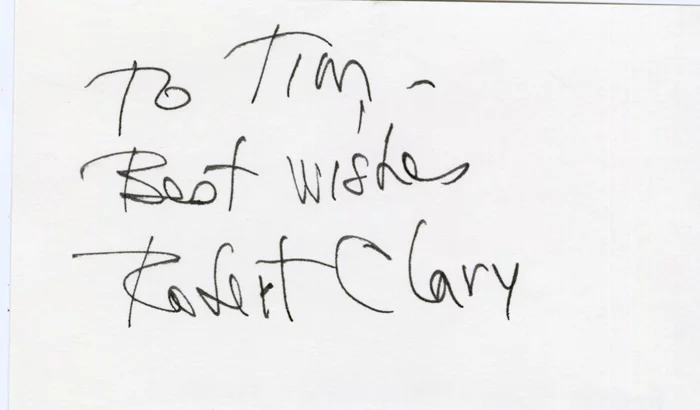 To Tim, -
Best wishes
Robert Clary